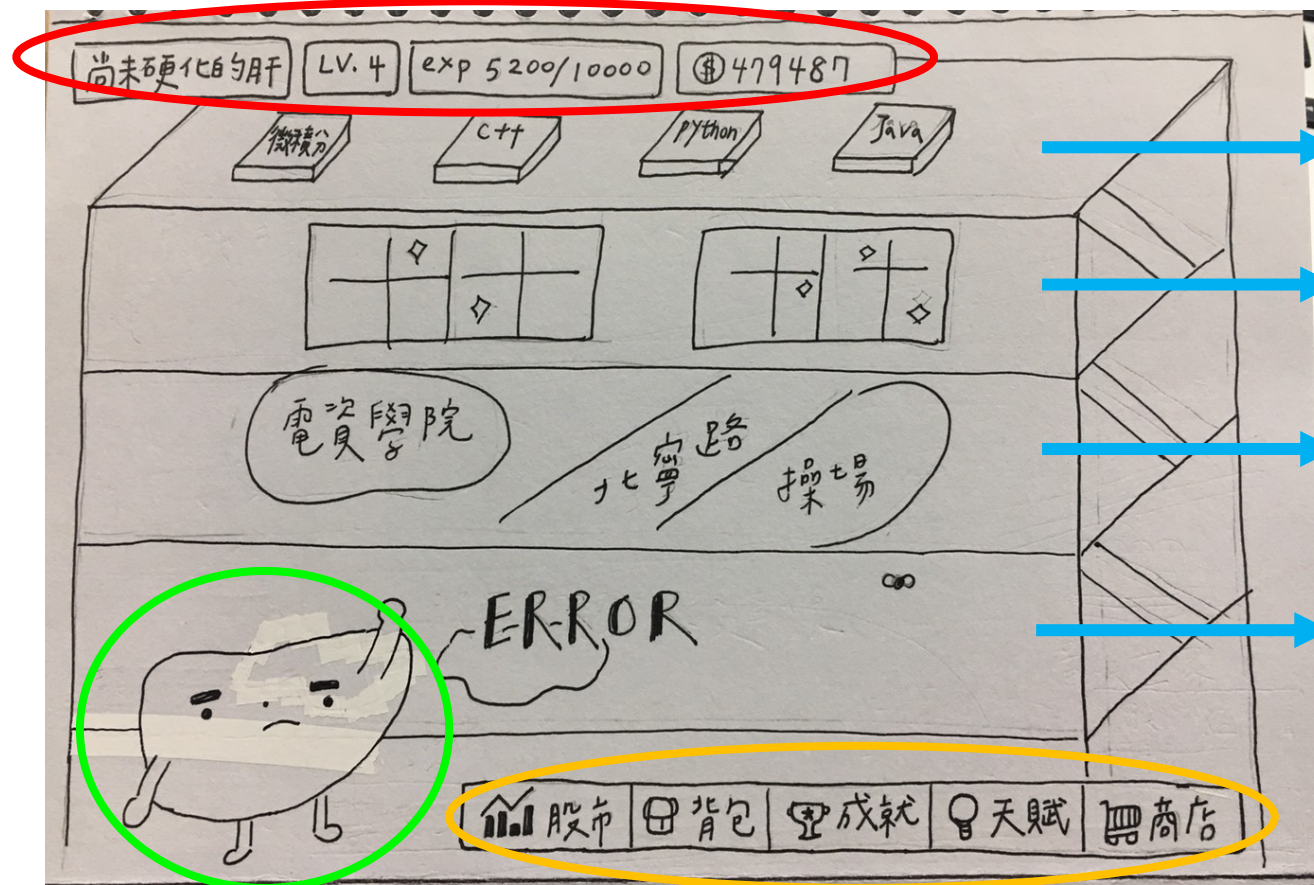 尚未硬化的肝 LV.4 exp 5200/10000 $479487
微積分 C++ Python Java
電資學院 北寧路 操場
ERROR
股市 背包 成就 天賦 商店